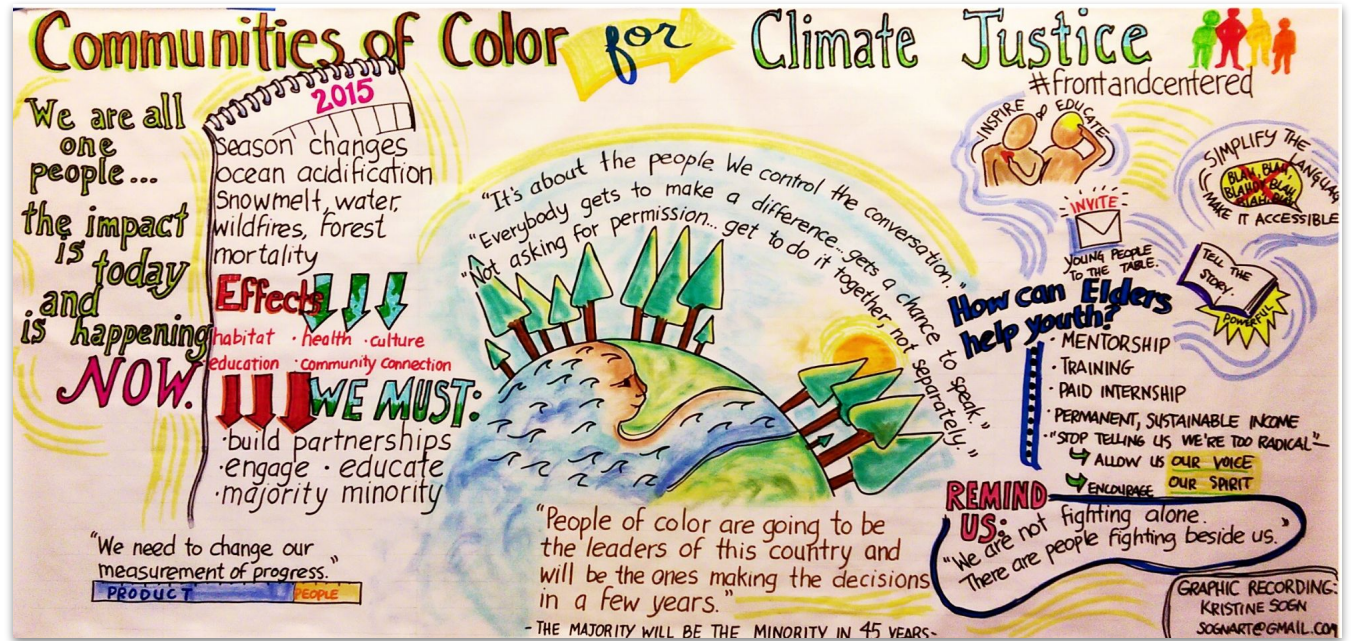 Communities of Color for Climate Justice
#frontandcentered
We are all
one
people...
the impact
is today
and
is happening
NOW.
2015
Season changes
ocean acidification
Snowmelt, water,
wildfires, forest
mortality
Effects
habitat · health · culture
education · community connection
WE MUST:
·build partnerships
·engage · educate
·majority minority
"We need to change our
measurement of progress."
PRODUCT PEOPLE
"It's about the people. We control the conversation."
"Everybody gets to make a difference... gets a chance to speak."
"Not asking for permission... get to do it together, not separately."
"People of color are going to be
the leaders of this country and
will be the ones making the decisions
in a few years."
- THE MAJORITY WILL BE THE MINORITY IN 45 YEARS-
INSPIRE & EDUCATE
SIMPLIFY THE LANGUAGE
BLAH, BLAH,
BLAH, BLAH,
BLAH, BLAH
MAKE IT ACCESSIBLE
INVITE
YOUNG PEOPLE
TO THE TABLE.
TELL THE
STORY.
POWERFUL
How can Elders
help youth?
· MENTORSHIP
· TRAINING
· PAID INTERNSHIP
· PERMANENT, SUSTAINABLE INCOME
· "STOP TELLING US WE'RE TOO RADICAL"-
ALLOW US OUR VOICE
ENCOURAGE OUR SPIRIT
REMIND
US:
"We are not fighting alone.
There are people fighting beside us."
GRAPHIC RECORDING:
KRISTINE SOGN
SOGNART@GMAIL.COM